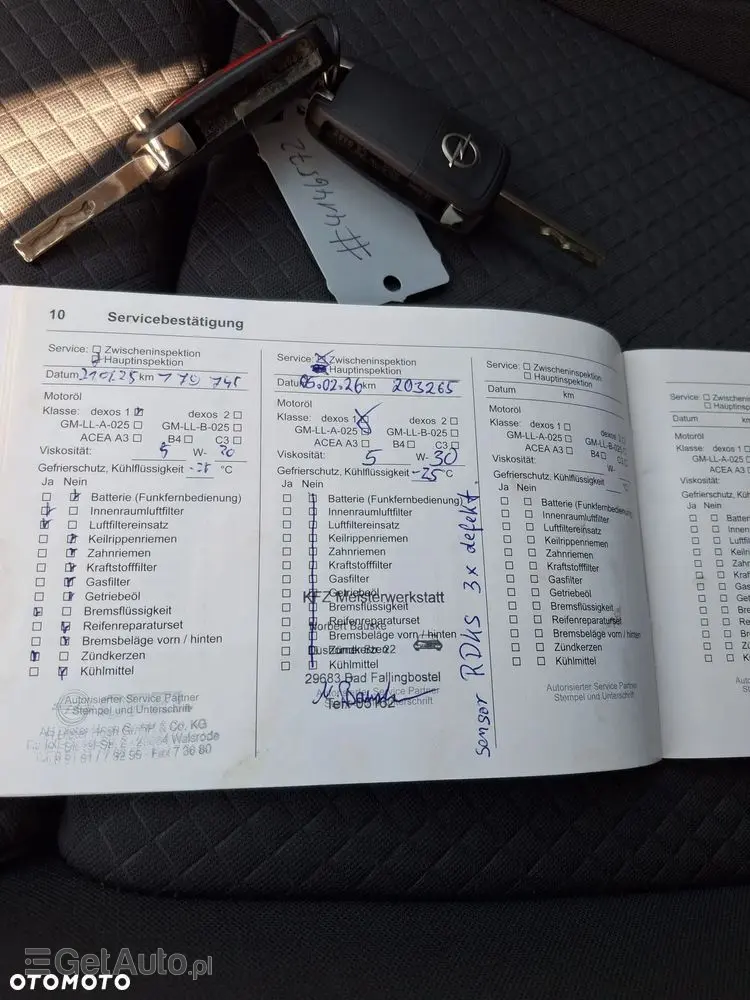 #4146572
10 Servicebestätigung
Service: Zwischeninspektion
Hauptinspektion
Datum km
Motoröl
Klasse: dexos 1 dexos 2
GM-LL-A-025 GM-LL-B-025
ACEA A3 B4 C3
Viskosität: 5 W-
Gefrierschutz, Kühlflüssigkeit °C
Ja Nein
Batterie (Funkfernbedienung)
Innenraumluftfilter
Luftfiltereinsatz
Keilrippenriemen
Zahnriemen
Kraftstofffilter
Gasfilter
Getriebeöl
Bremsflüssigkeit
Reifenreparaturset
Bremsbeläge vorn / hinten
Zündkerzen
Kühlmittel
Autorisierter Service Partner
Stempel und Unterschrift
& Co. KG
Walsrode
Service: Zwischeninspektion
Hauptinspektion
Datum 05.02.26 km 203265
Motoröl
Klasse: dexos 1 dexos 2
GM-LL-A-025 GM-LL-B-025
ACEA A3 B4 C3
Viskosität: 5 W-30
Gefrierschutz, Kühlflüssigkeit -25 °C
Ja Nein
Batterie (Funkfernbedienung)
Innenraumluftfilter
Luftfiltereinsatz
Keilrippenriemen
Zahnriemen
Kraftstofffilter
Gasfilter
Getriebeöl
KFZ Meisterwerkstatt
Bremsflüssigkeit
Reifenreparaturset
Norbert
Bremsbeläge vorn / hinten
Zündkerzen
Kühlmittel
29683 Bad Fallingbostel
Autorisierter Service Partner
sensor RDKS 3x defekt.
Service: Zwischeninspektion
Hauptinspektion
Datum km
Motoröl
Klasse: dexos 1 dexos 2
GM-LL-A-025 GM-LL-B-025
ACEA A3 B4 C3
Viskosität: W-
Gefrierschutz, Kühlflüssigkeit °C
Ja Nein
Batterie (Funkfernbedienung)
Innenraumluftfilter
Luftfiltereinsatz
Keilrippenriemen
Zahnriemen
Kraftstofffilter
Gasfilter
Getriebeöl
Bremsflüssigkeit
Reifenreparaturset
Bremsbeläge vorn / hinten
Zündkerzen
Kühlmittel
Autorisierter Service Partner
Stempel und Unterschrift
Service:
Datum km
Motoröl
Klasse: dexos 1
GM-LL-A-025
ACEA A3
Viskosität:
Gefrierschutz,
Ja Nein
GetAuto.pl
OTOMOTO